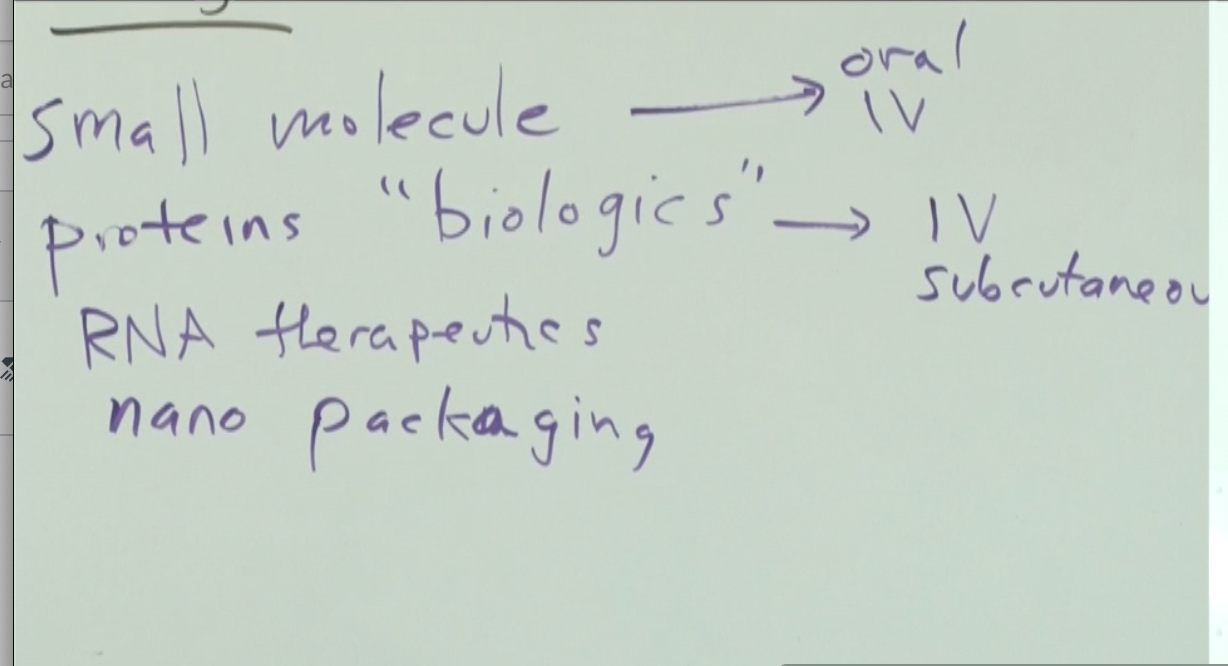 small molecule ⟶ oral
IV
proteins "biologics" → IV
subcutaneou
RNA therapeutics
nano packaging